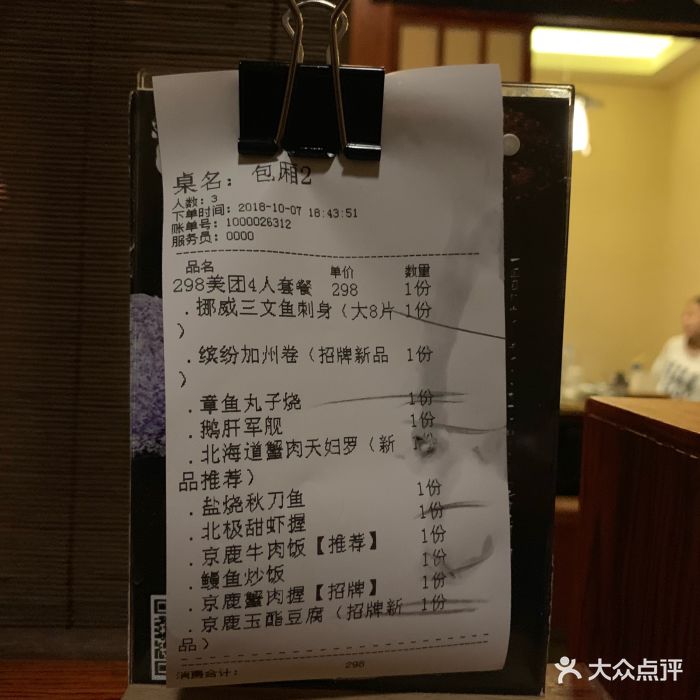 桌名：包厢2
人数：3
下单时间：2018-10-07 18:43:51
帐单号：1000026312
服务员：0000
品名 单价 数量
298美团4人套餐 298 1份
．挪威三文鱼刺身（大8片 1份
）
．缤纷加州卷（招牌新品 1份
）
．章鱼丸子烧 1份
．鹅肝军舰 1份
．北海道蟹肉天妇罗（新 1份
品推荐）
．盐烧秋刀鱼 1份
．北极甜虾握 1份
．京鹿牛肉饭【推荐】 1份
．鳗鱼炒饭 1份
．京鹿蟹肉握【招牌】 1份
．京鹿玉酯豆腐（招牌新 1份
品）
消费合计： 298
大众点评